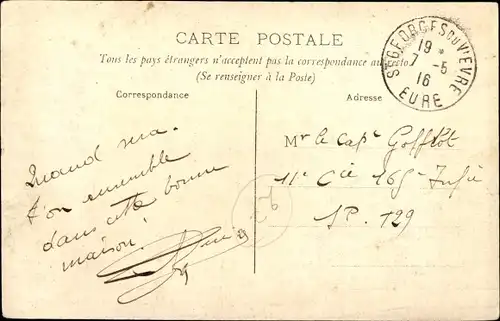 CARTE POSTALE
Tous les pays étrangers n'acceptent pas la correspondance au recto.
(Se renseigner à la Poste)
Correspondance
Adresse
ST GEORGES DU VIEVRE
19 *
7 -5
16
EURE
Quand
t'on ensemble
dans cette bonne
maison!
Mr le Capt
11e Cie 165e
SP. 129